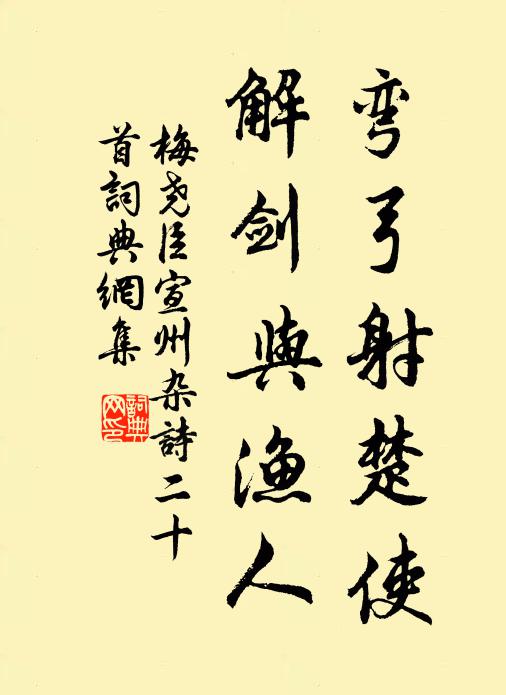 弯弓射楚使
解剑與渔人
梅尧臣宣州杂詩二十
首詞典網集
詞典
网印